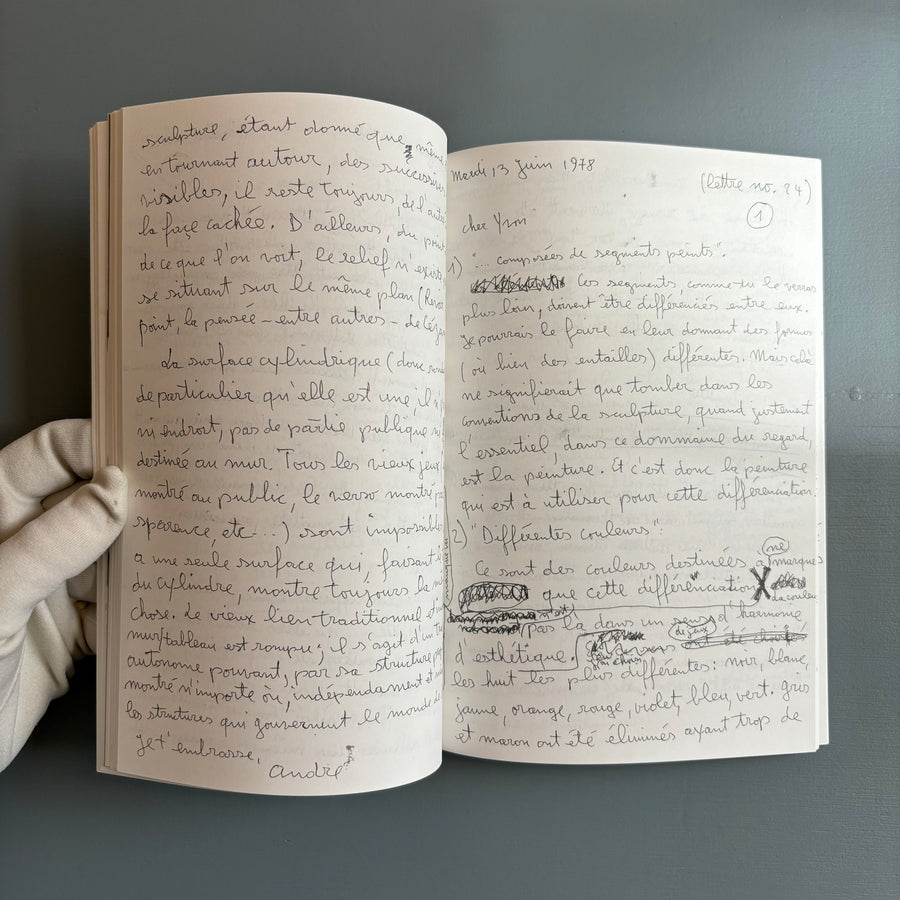 sculpture, étant donné que, même
en tournant autour, des successives
visibles, il reste toujours, de l'autre
la façe cachée. D'ailleurs, du point
de ce que l'on voit, le relief n'existe
se situant sur le même plan
point, la pensée – entre autres – de
La surface cylindrique (donc
de particulier qu'elle est une, il
ni endroit, pas de partie publique
destinée au mur. Tous les vieux jeux
montré au public, le verso montré
sparence, etc...) sont impossibles
a une seule surface qui, faisant
du cylindre, montre toujours la
chose. Le vieux lien traditionnel
mur/tableau est rompu; il s'agit d'un
autonome pouvant, par sa structure
montré n'importe où, indépendament
les structures qui gouvernent le monde de
je t'embrasse,
andré
mardi 13 juin 1978
(lettre no. 24)
1
cher Yvon
1) "... composées de segments peints".
Ces segments, comme tu le verras
plus loin, doivent être différenciés entre eux.
je pourrais le faire en leur donnant des formes
(où bien des entailles) différentes. Mais celà
ne signifierait que tomber dans les
conventions de la sculpture, quand justement
l'essentiel, dans ce dommaine du regard,
est la peinture. Et c'est donc la peinture
qui est à utiliser pour cette différenciation.
2) "Différentes couleurs":
Ce sont des couleurs destinées a (ne) marquer
que cette différenciation
pas la dans un sens d'harmonie
d'esthétique.
les huit les plus différentes: noir, blanc,
jaune, orange, rouge, violet, bleu, vert. gris
et maron ont été éliminés ayant trop de